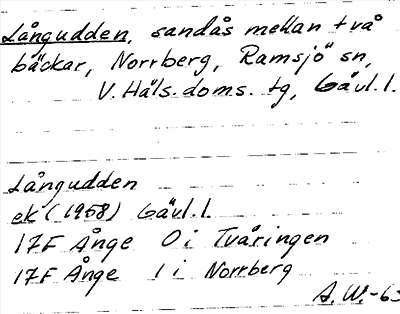 Långudden, sandås mellan två
bäckar, Norrberg, Ramsjö sn,
V. Häls. doms. tg, Gävl. l.
Långudden
ek (1958) Gävl. l.
17F Ånge 0 i Tväringen
17F Ånge 1 i Norrberg
A.W.-63